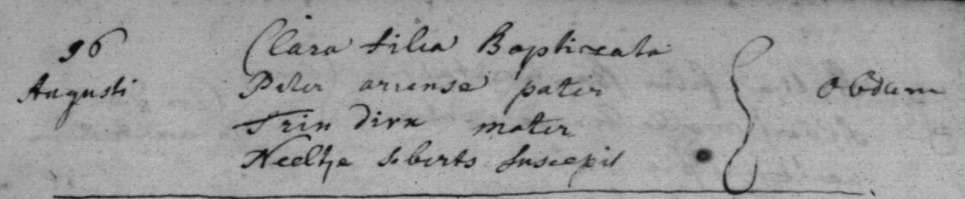 96
Augusti
Clara filia Baptizata
Peter ariense pater
Trin Dirx mater
Neeltje Seberts Suscepit
Obdam